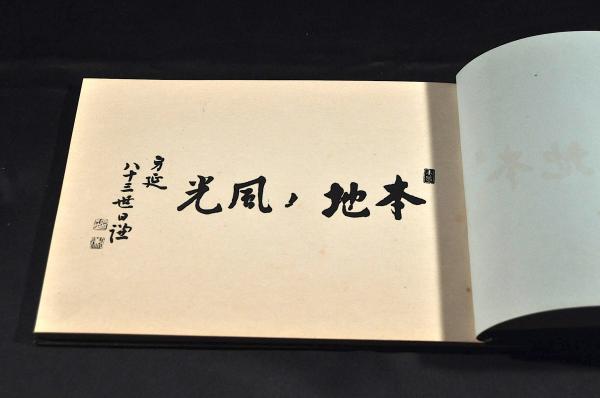 本地ノ風光
身延
八十三世日謙